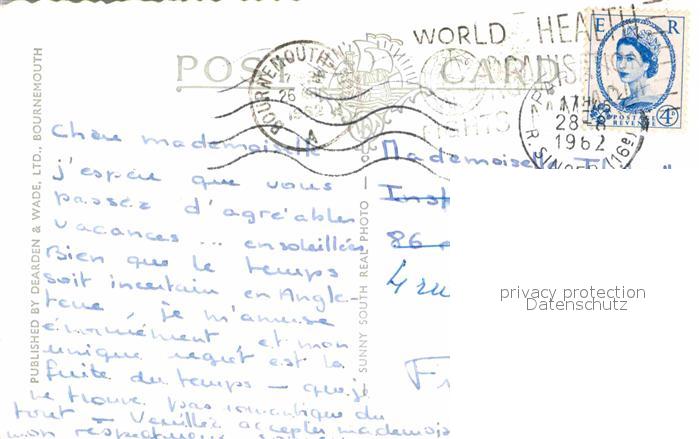 WORLD HEALTH
POST CARD
BOURNEMOUTH
26
A
E R
POSTAGE REVENUE
4D
28-
1962
R. SINGER (16e)
Chère mademoiselle
j'espère que vous
passez d'agréables
vacances ... ensoleillées
Bien que le temps
soit incertain en Angle-
terre je m'amuse
énormément et mon
unique regret est la
fuite du temps - que je
ne trouve pas romantique du
tout - Veuillez accepter mademois
mon respectueux
Mademoiselle
Inst
86
4 ru
F
PUBLISHED BY DEARDEN & WADE, LTD., BOURNEMOUTH
SUNNY SOUTH REAL PHOTO
privacy protection
Datenschutz